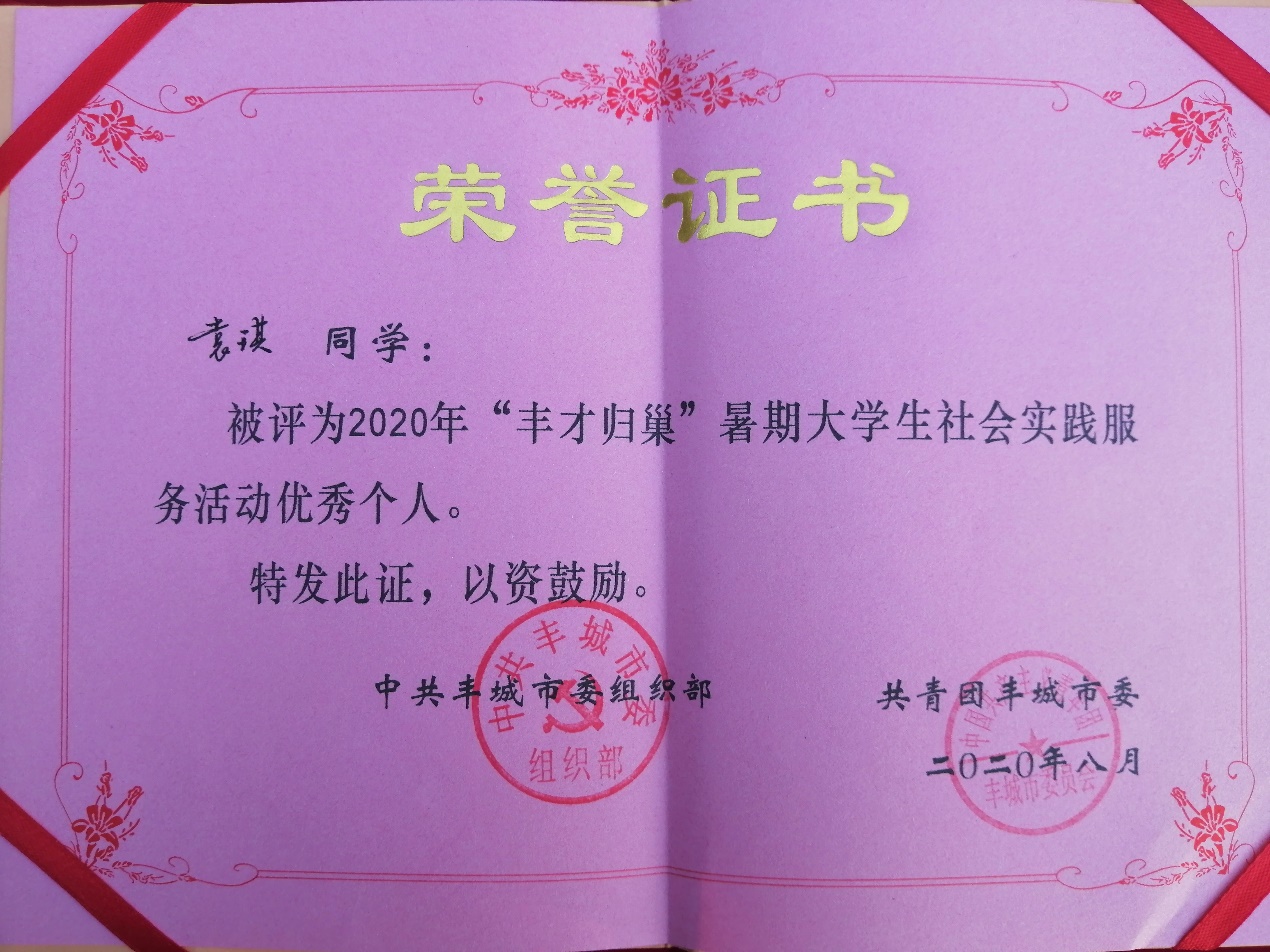 荣誉证书
袁琪 同学：
被评为2020年“丰才归巢”暑期大学生社会实践服
务活动优秀个人。
特发此证，以资鼓励。
中共丰城市委组织部
共青团丰城市委
二〇二〇年八月
中共丰城市委
组织部
中国共产主义青年团
丰城市委员会